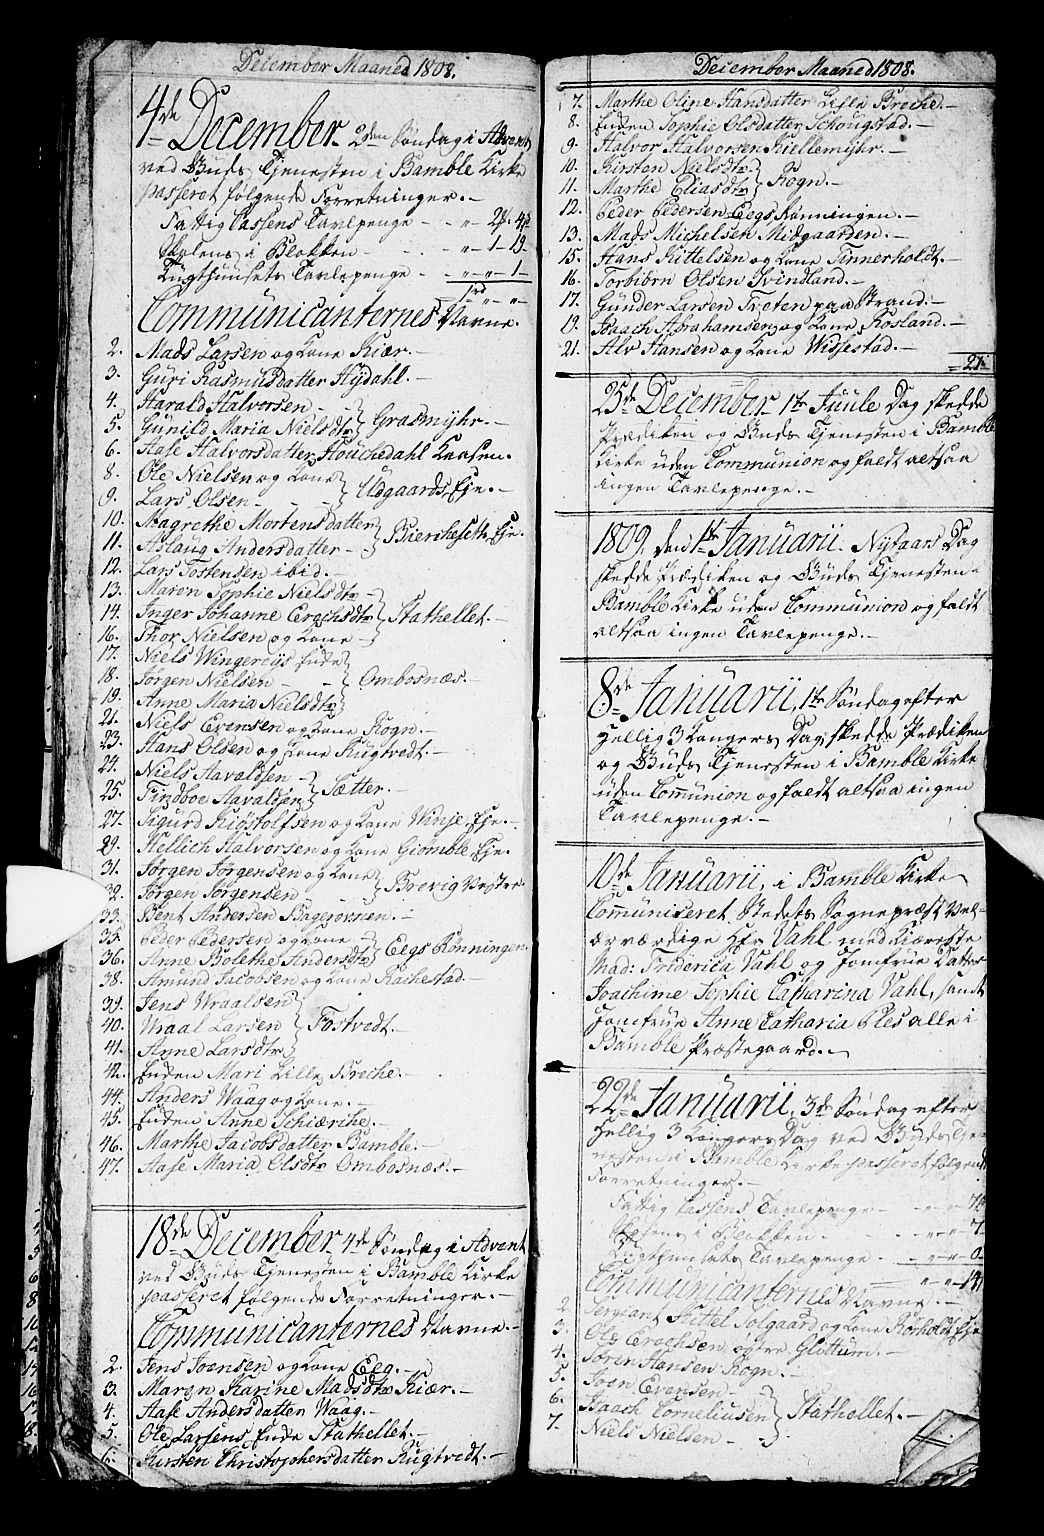 December Maaned 1808.
4de December. 2den Søndag i Advent
ved Guds Tjenesten i Bamble Kirke
passeret følgende Forretninger. —
Fattig Cassens Tavlepenge - - „ 2f. 4s
Skolens i Blokken - . - „ 1 - 19 -
Tugthuusets Tavlepenge - - „ - „ - 1 -
Communicanternes Navne.
2. Mads Larsen og Kone Kiær. —
3. Guri Rasmusdatter Hydahl. —
4. Harald Halvorsen - -
5. Gunild Maria Nielsdtr } Grasmyhr. —
6. Aase Halvorsdatter Houchedahl Kaasen.
8. Ole Nielsen og Kone
9. Lars Olsen - - } Udgaards Eje. —
10. Magrethe Mortensdatter
11. Aslaug Andersdatter - } Bierckesett Eje.
12. Lars Tostensen ibid. —
13. Maren Sophie Nielsdtr -
14. Inger Johanne Erichsdtr } Stathellet. —
16. Thor Nielsen og Kone -
17. Niels Wingereijs Enke
18. Jørgen Nielsen - - } Ombosnæs. —
19. Anne Maria Nielsdtr
21. Niels Evensen og Kone Rogn. —
23. Hans Olsen og Kone Rugtvedt. —
24. Niels Aavaldsen -
25. Findboe Aavaldsen } Sætter. —
27. Sigurd Rigstolfsen og Kone Winje Eje. -
29. Hellich Halvorsen og Kone Giomble Eje.
31. Jørgen Jørgensen og Kone
32. Jørgen Jørgensen } Brevig Vestre
33. Bent Andersen Bagerovnen. —
35. Peder Pedersen og Kone
36. Anne Bolethe Andersdtr } Eegs Rønningen.
38. Amund Jacobsen og Kone Rachestad. —
39. Jens Wraalsen
40. Wraal Larsen } Fostvedt.
41. Anne Larsdtr
42. Enken Mari Lille Breche. —
44. Anders Waag og Kone. —
45. Enken Anne Schiærche. —
46. Marthe Jacobsdatter Bamble. —
47. Aase Maria Olsdtr Ombosnæs. —
18de December. 4de Søndag i Advent
ved Guds Tjenesten i Bamble Kirke
passeret følgende Forretninger. —
Communicanternes Navne. —
2. Jens Joensen og Kone Eeg. —
3. Maren Karine Madsdtr Kiær. —
4. Aase Andersdatter Waag. —
5. Ole Larsens Enke Stathellet. —
6. Kirsten Christophersdatter Rugtvedt. —
December Maaned 1808.
7. Marthe Oline Hansdatter Lille Breche. —
8. Enken Sophie Olsdatter Schougstad. —
9. Halvor Halvorsen Kiellemyhr. —
10. Kirsten Nielsdtr
11. Marthe Eliasdtr } Rogn. —
12. Peder Pedersen Eegs Rønningen. —
13. Mads Michelsen Midgaarden. —
15. Hans Kittelsen og Kone Tinnerholdt. —
16. Torbiørn Olsen Qvindland. —
17. Gunder Larsen Treten paa Strand. —
19. Isaach Abrahamsen og Kone Rosland. —
21. Alv Hansen og Kone Wissestad. —
21
25de December. 1te Juule Dag skedde
Prædiken og Guds Tjenesten i Bamble
Kirke uden Communion og faldt altsaa
ingen Tavlepenge. —
1809, den 1te Januarii. Nytaars Dag
skedde Prædiken og Guds Tjenesten i
Bamble Kirke uden Communion og faldt
altsaa ingen Tavlepenge. —
8de Januarii, 1te Søndag efter
Hellig 3 Kongers Dag, skedde Prædiken
og Guds Tjenesten i Bamble Kirke
uden Communion og faldt altsaa ingen
Tavlepenge. —
10de Januarii, i Bamble Kirke
Communiseret Stedets Sognepræst Vel-
ærværdige Hr Vahl med Kiæreste
Mad: Friderica Vahl og Jomfrue Datter
Joachime Sophie Catharina Vahl, samt
Jomfrue Anne Catharia Ples alle i
Bamble Præstegaard. —
22de Januarii, 3de Søndag efter
Hellig 3 Kongers Dag ved Guds Tje-
nesten i Bamble Kirke passeret følgende
Forretninger. —
Fattig Cassens Tavlepenge - - „ - „ - 7
Skolens i Blokken. - „ - „ - 7
Tugthuusets Tavlepenge - „ - „ - 0
Communicanternes Navne. —
2. Sergiant Kittel Solgaard og Kone Rørholdt Eje
3. Ole Erochsen øvre Glittum. —
4. Søren Hansen Rogn. —
5. Joen Evensen -
6. Isaach Corneliusen } Stathellet. —
7. Niels Nielsen - -